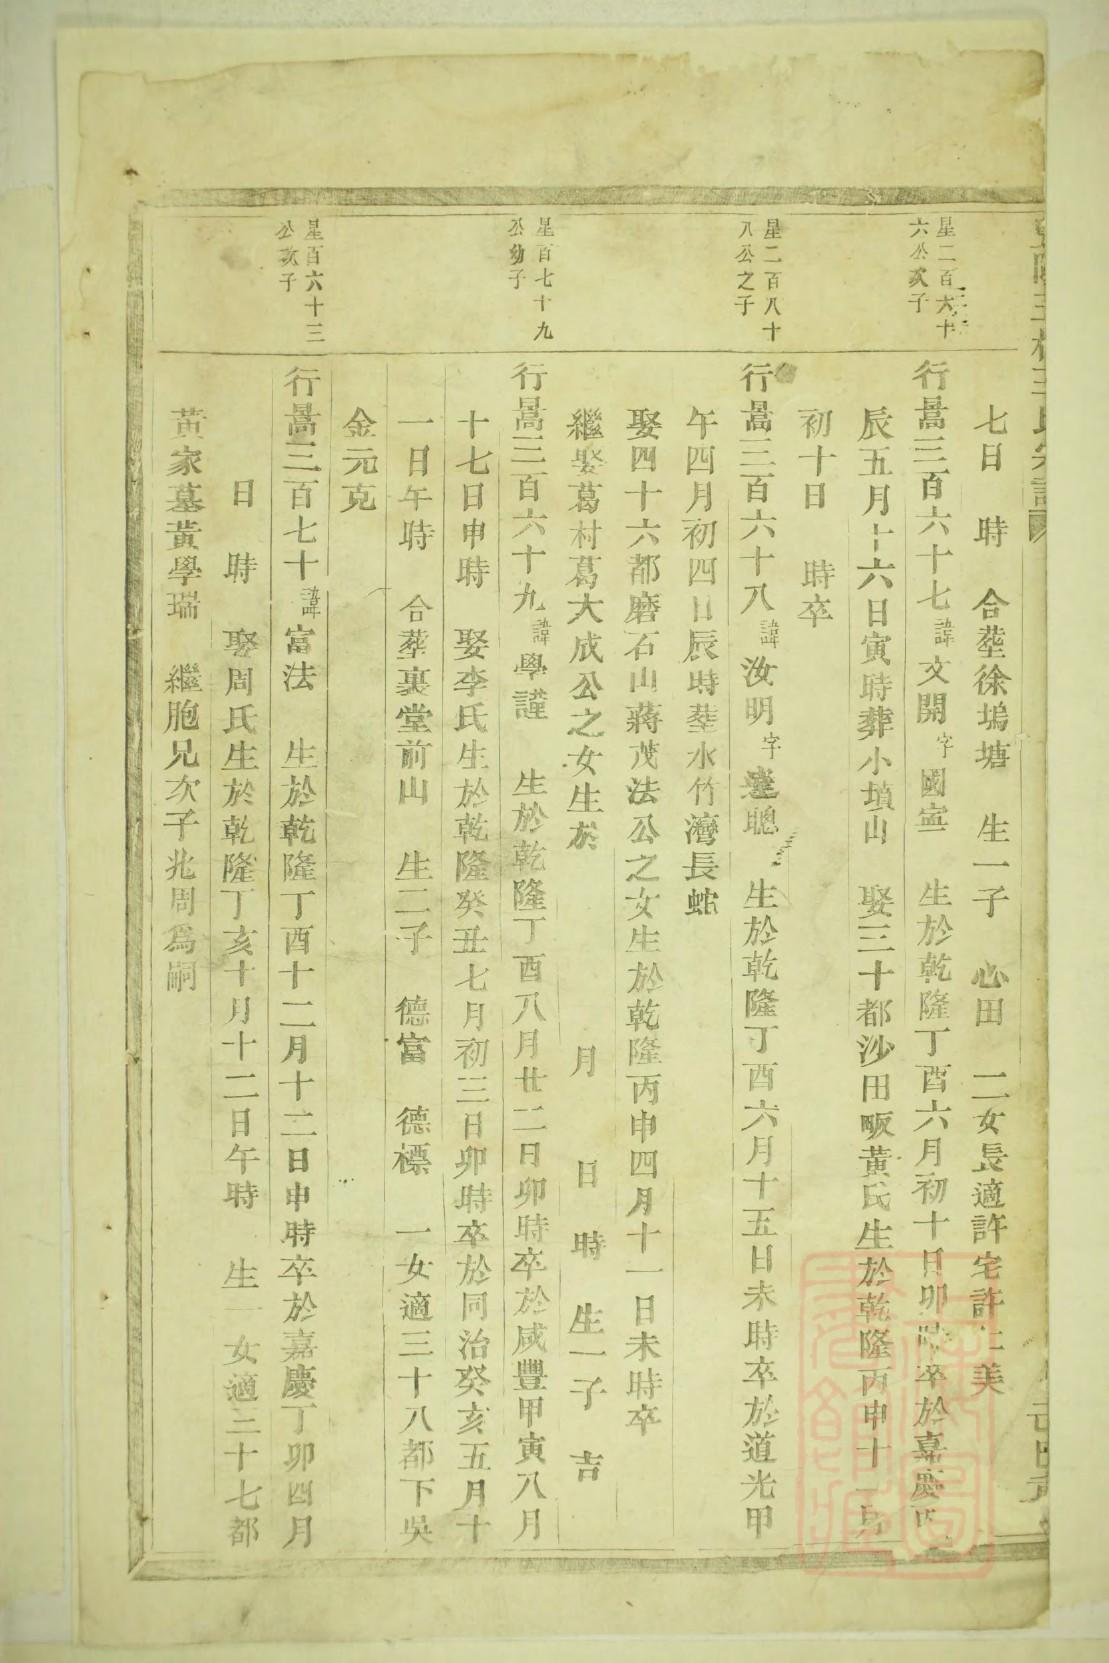 七日 時 合塟徐塢塘 生一子 心田 二女長適許宅許仁美
星二百六十
六公次子
行暠三百六十七諱文開字國寧 生於乾隆丁酉六月初十日卯時卒於嘉慶丙
辰五月十六日寅時葬小墳山 娶三十都沙田畈黃氏生於乾隆丙申十一月
初十日 時卒
星二百八十
八公之子
行暠三百六十八諱汝明字達聰 生於乾隆丁酉六月十五日未時卒於道光甲
午四月初四日辰時塟水竹灣長蛇
娶四十六都磨石山蔣茂法公之女生於乾隆丙申四月十一日未時卒
繼娶葛村葛大成公之女生於 月 日 時 生一子 吉
星百七十九
公幼子
行暠三百六十九諱學謹 生於乾隆丁酉八月廿二日卯時卒於咸豐甲寅八月
十七日申時 娶李氏生於乾隆癸丑七月初三日卯時卒於同治癸亥五月十
一日午時 合塟裏堂前山 生二子 德富 德標 一女適三十八都下吳
金元克
星百六十三
公次子
行暠三百七十諱富法 生於乾隆丁酉十二月十二日申時卒於嘉慶丁卯四月
日 時 娶周氏生於乾隆丁亥十月十二日午時 生一女適三十七都
黃家墓黃學瑞 繼胞兄次子兆周爲嗣